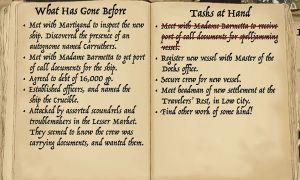 What Has Gone Before
• Met with Martigand to inspect the new
ship. Discovered the presence of an
autognome named Carruthers.
• Met with Madame Barnetta to get port
of call documents for the ship.
• Agreed to debt of 16,000 gp.
• Established officers, and named the
ship the Crucible.
• Attacked by assorted scoundrels and
troublemakers in the Lesser Market.
They seemed to know the crew was
carrying documents, and wanted them.
Tasks at Hand
• Meet with Madame Barnetta to receive
port of call documents for spelljamming
vessel.
• Register new vessel with Master of the
Docks office.
• Secure crew for new vessel.
• Meet headman of new settlement at the
Travelers' Rest, in Low City.
• Find other work of some kind!